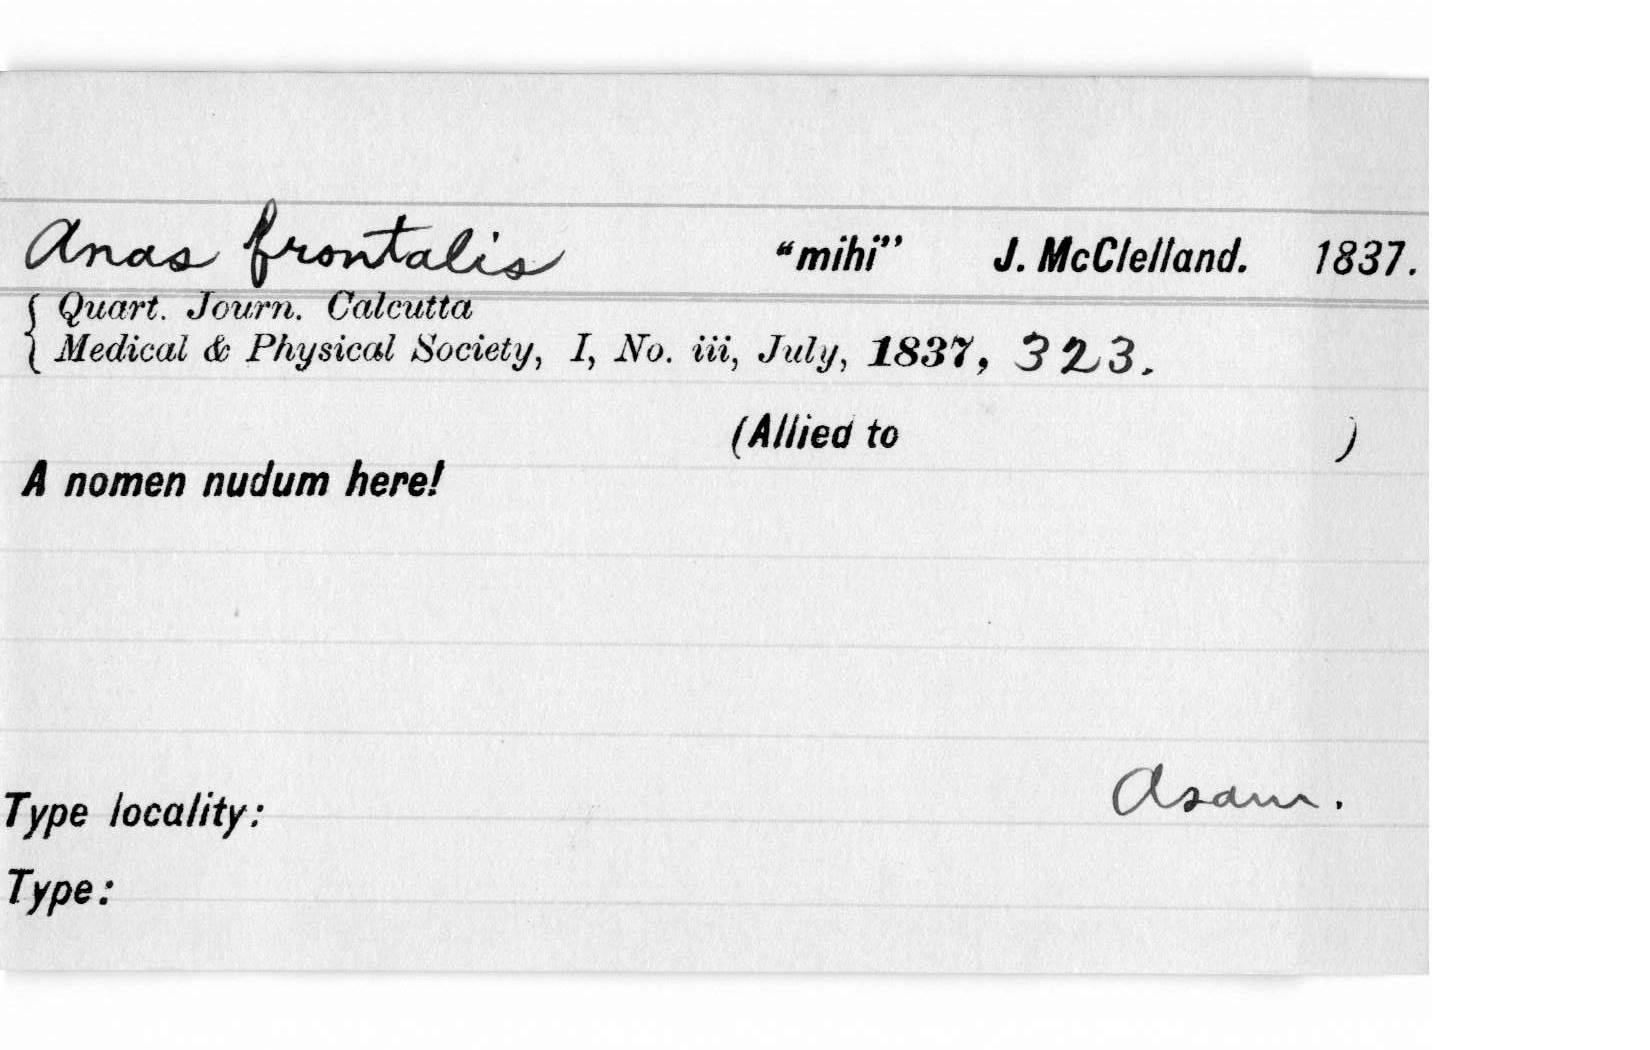 Anas frontalis “mihi” J. McClelland. 1837.
Quart. Journ. Calcutta
Medical & Physical Society, I, No. iii, July, 1837, 323.
(Allied to )
A nomen nudum here!
Asam.
Type locality:
Type: